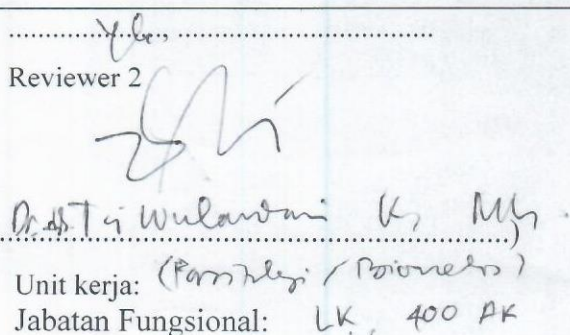 Reviewer 2
Tri Wulandari K, M
Unit kerja: (Parsitologi / Biomedis)
Jabatan Fungsional: LK, 400 AK